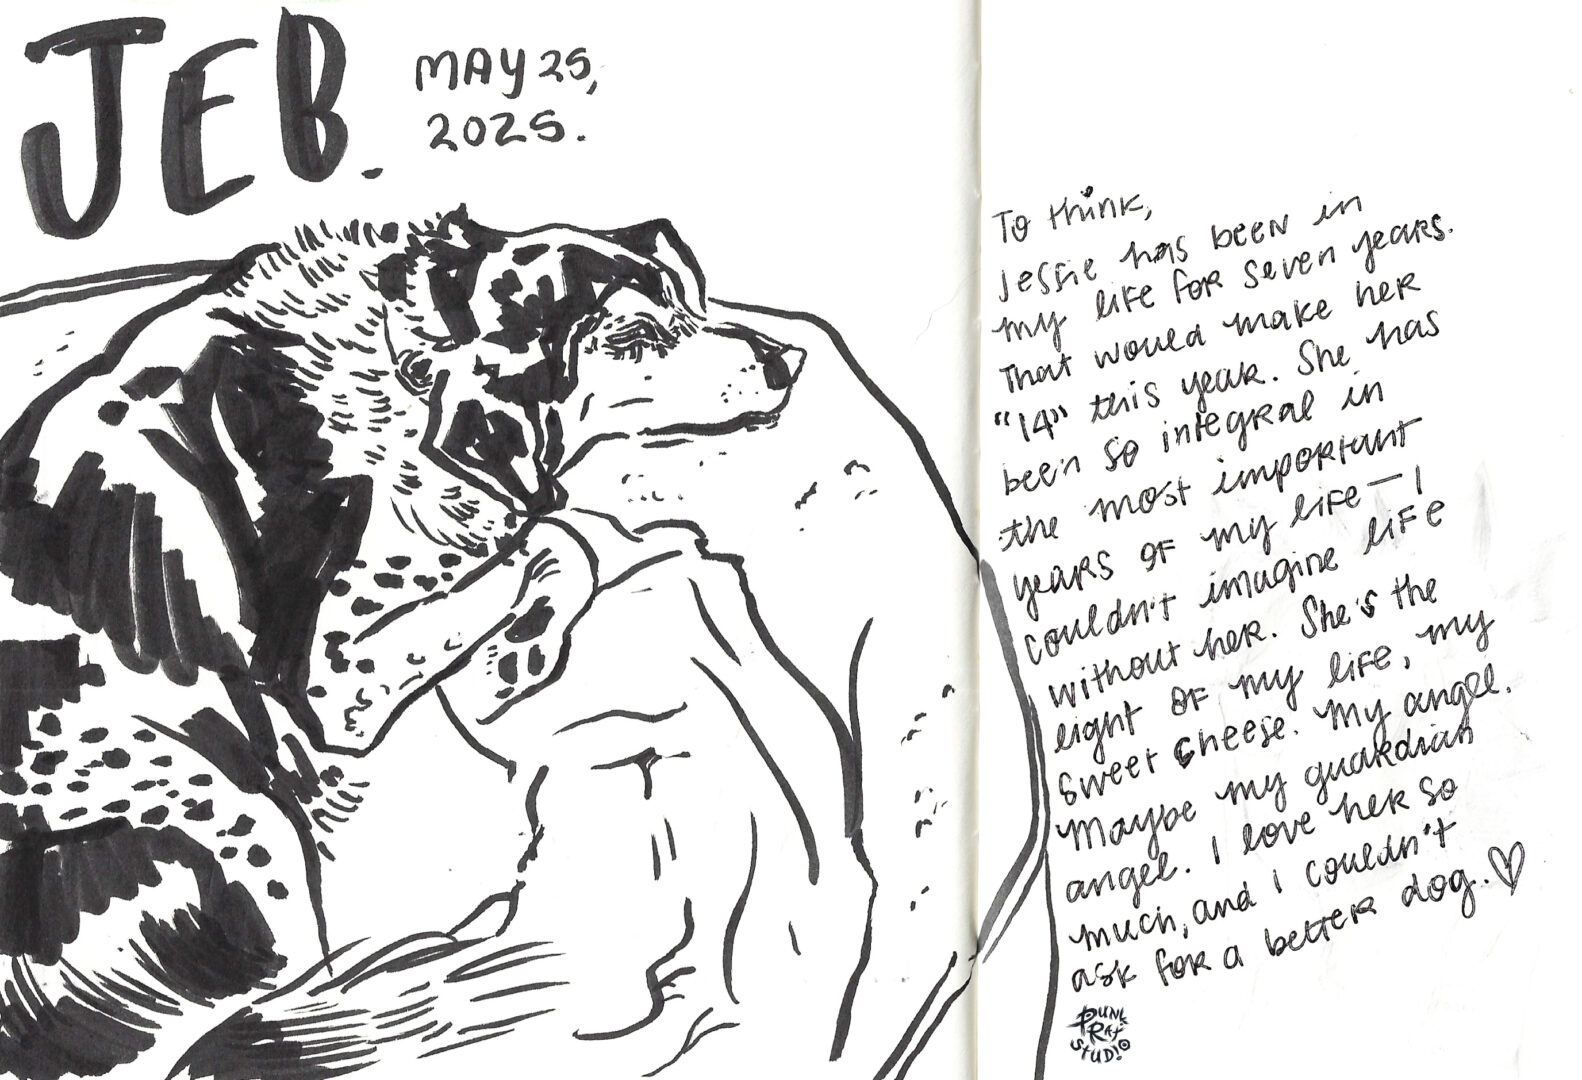 JEB.
MAY 25,
2025.
To think,
Jessie has been in
my life for seven years.
That would make her
"14" this year. She has
been so integral in
the most important
years of my life — I
couldn't imagine life
without her. She's the
light of my life, my
sweet cheese. My angel.
Maybe my guardian
angel. I love her so
much, and I couldn't
ask for a better dog. ♡
PUNK
RAT
STUDIO